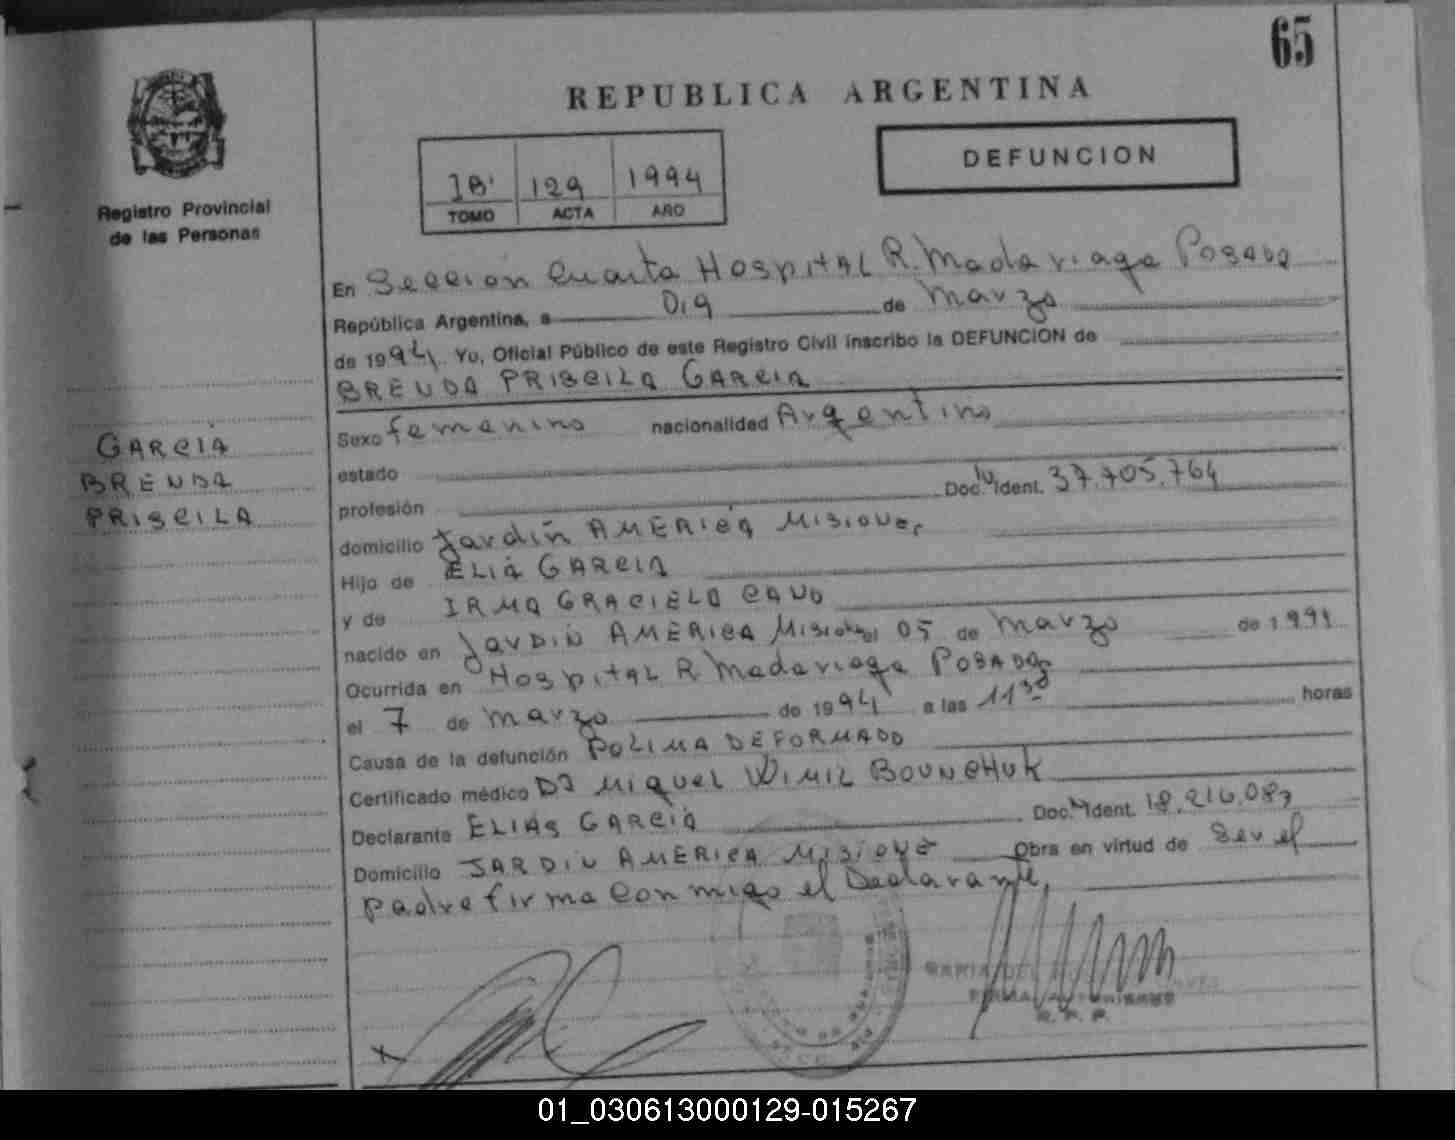 65
REPUBLICA ARGENTINA
DEFUNCION
IB' 129 1994
TOMO ACTA AÑO
Registro Provincial
de las Personas
En Sección Cuarta Hospital R. Madariaga Posadas
República Argentina, a 09 de Marzo
de 1994. Yo, Oficial Público de este Registro Civil inscribo la DEFUNCION de
BRENDA PRISCILA GARCIA
GARCIA
BRENDA
PRISCILA
Sexo femenino nacionalidad Argentino
estado
profesión Doc. Ident. 37.705.764
domicilio Jardín AMERICA Misiones
Hijo de ELIA GARCIA
y de IRMA GRACIELA CANO
nacido en JARDIN AMERICA Misiones el 05 de Marzo de 1994
Ocurrida en Hospital R. Madariaga POSADAS
el 7 de Marzo de 1994 a las 11 30 horas
Causa de la defunción POLIMADEFORMADO
Certificado médico Miguel
Declarante ELIAS GARCIA Doc. Ident. 18.216.087
Domicilio JARDIN AMERICA MISIONE Obra en virtud de Ser el
padre firma conmigo el Declarante,
01_030613000129-015267